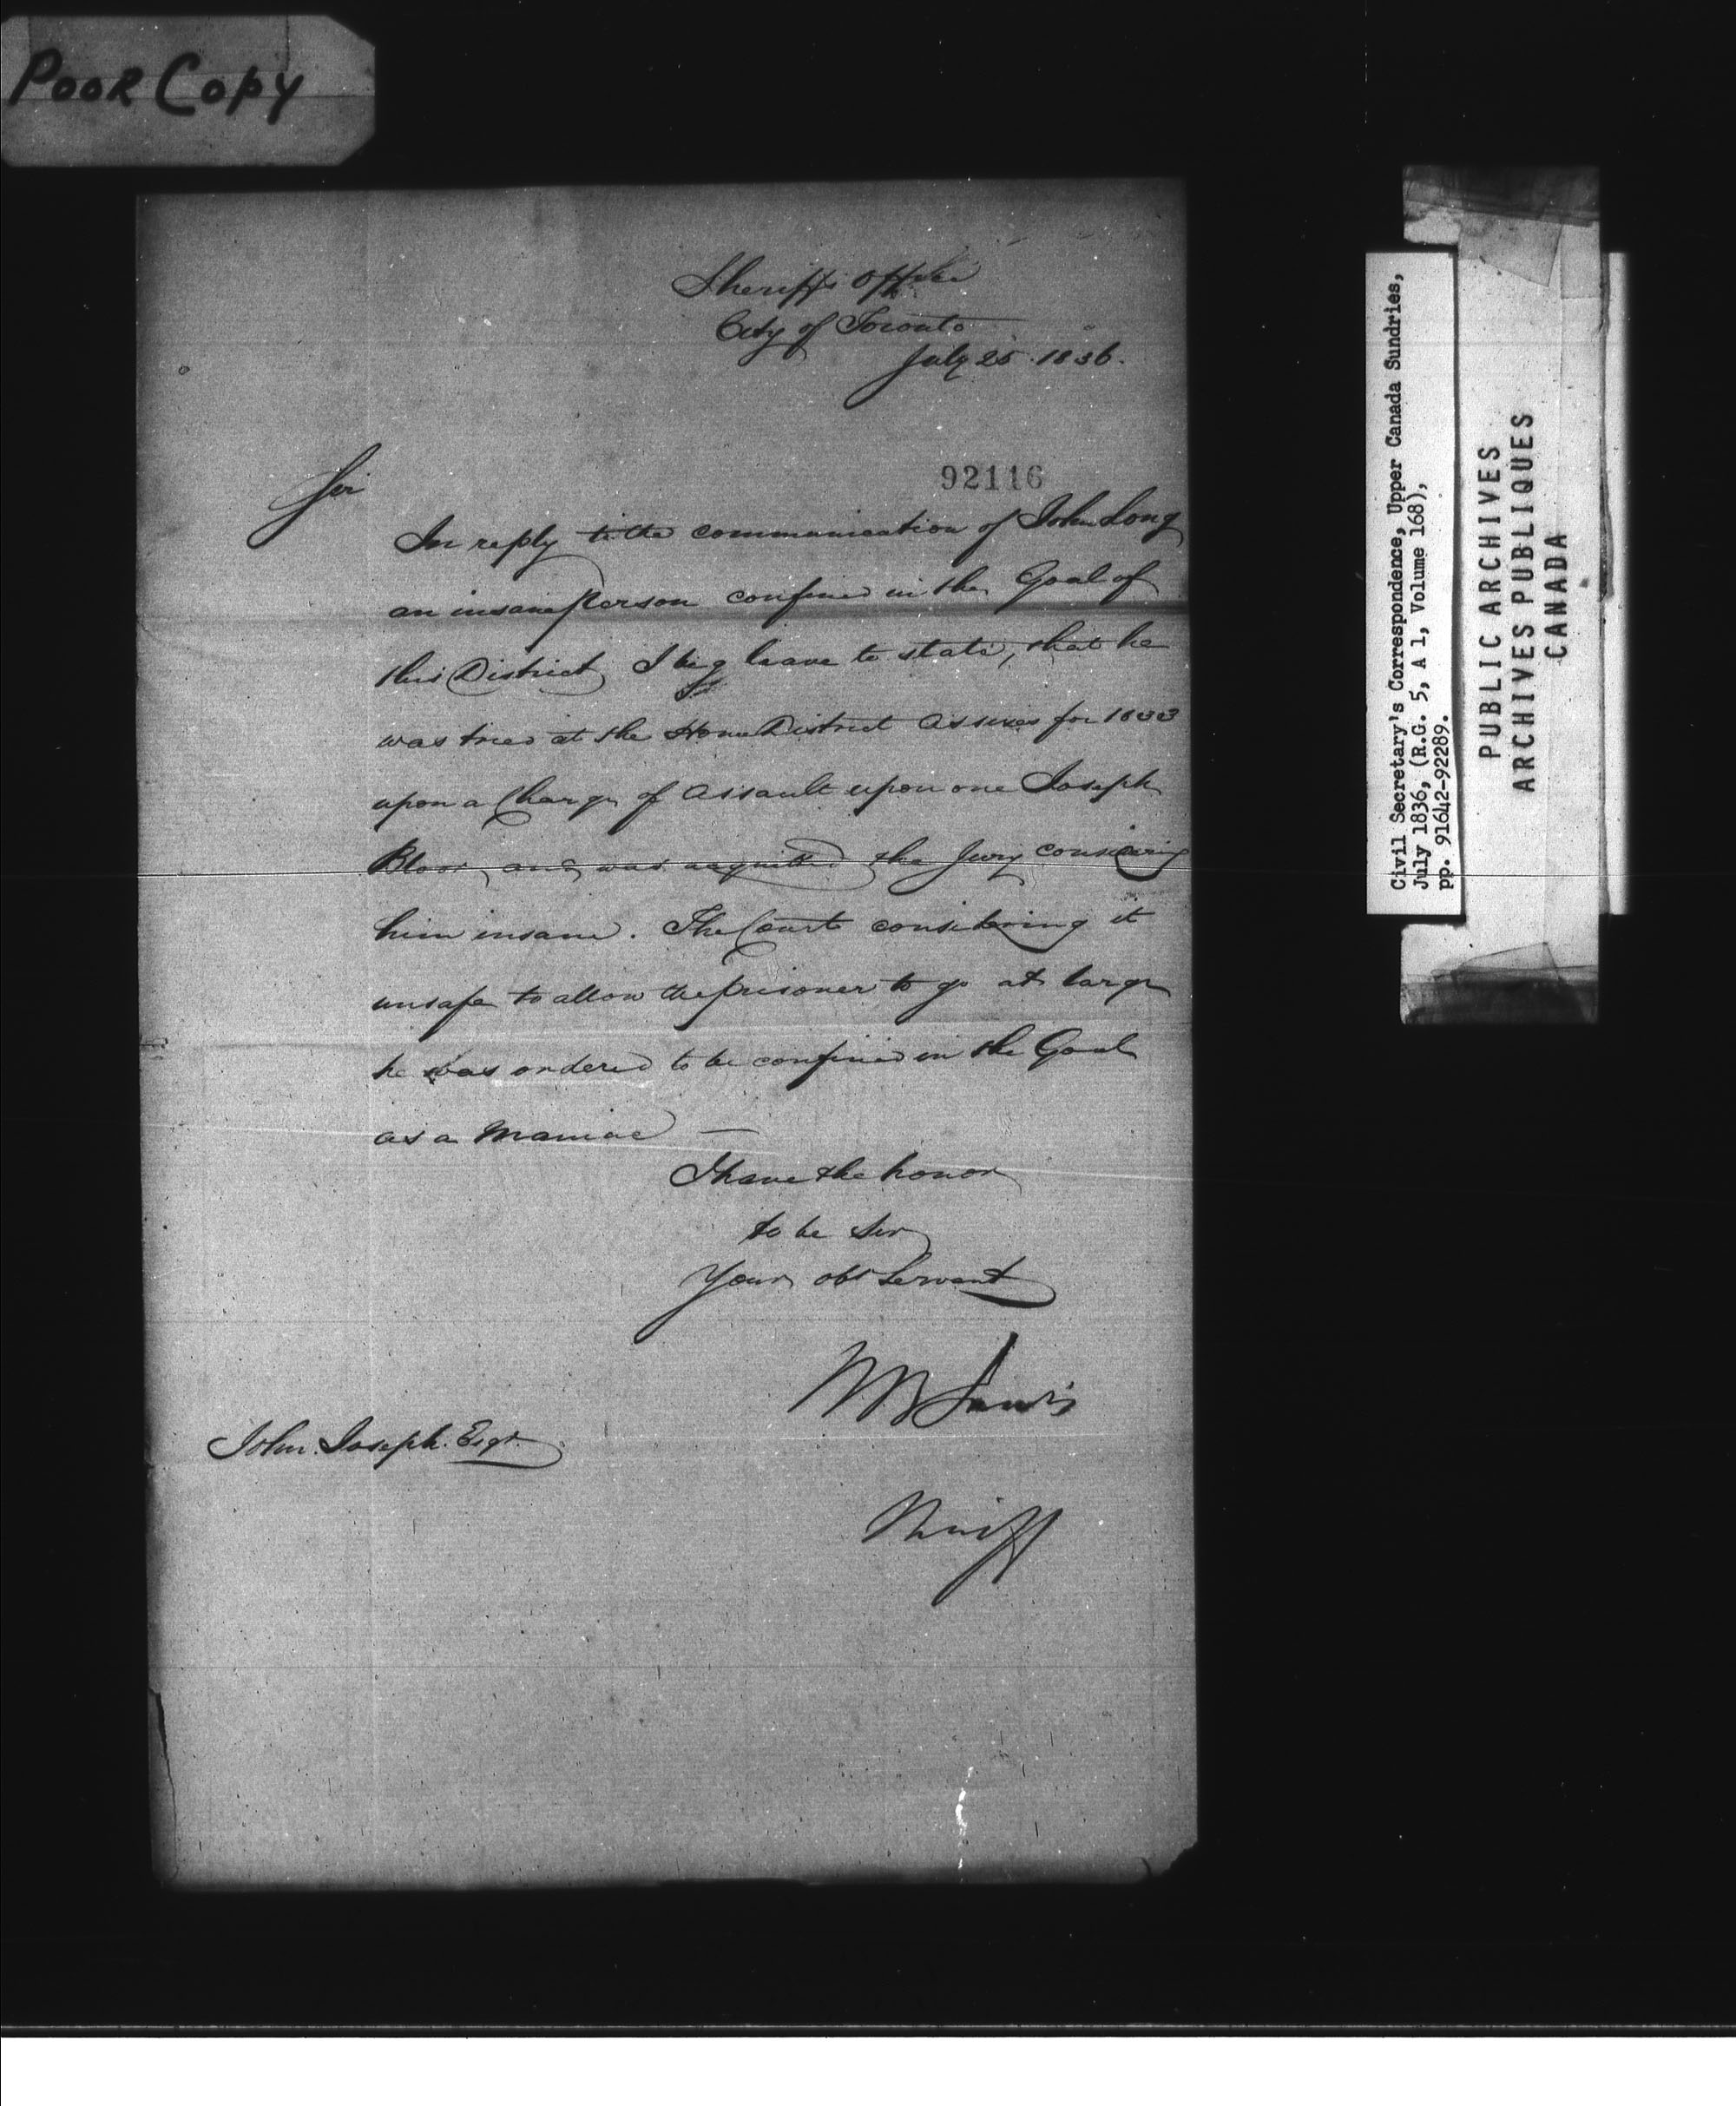 Poor Copy
Sheriffs Office
City of Toronto
July 25 1836.
92116
Sir
In reply to the communication of John Long
an insane person confined in the Goal of
this District I beg leave to state, that he
was tried at the Home District Assizes for 1833
upon a Charge of Assault upon one Joseph
Bloor, and was acquitted the Jury considering
him insane. The Court considering it
unsafe to allow the prisoner to go at large
he was ordered to be confined in the Goal
as a Maniac —
I have the honor
to be Sir
Your obt Servant
WB Jarvis
John Joseph Esqr.
Sheriff
Civil Secretary's Correspondence, Upper Canada Sundries,
July 1836, (R.G. 5, A 1, Volume 168),
pp. 91642-92289.
PUBLIC ARCHIVES
ARCHIVES PUBLIQUES
CANADA